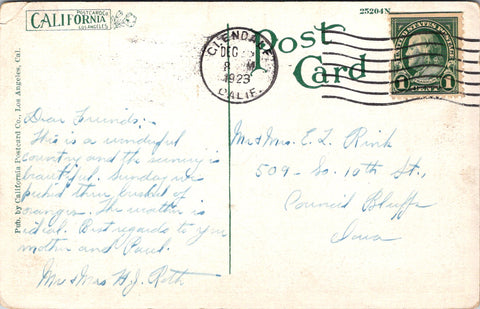 POSTCARD CO.
CALIFORNIA
LOS ANGELES
25204N
Post
Card
GLENDALE
DEC
8 M
1923
CALIF.
UNITED STATES POSTAGE
1 CENT 1
Pub. by California Postcard Co., Los Angeles, Cal.
Dear Friends:-
This is a wonderful
country and the scenery is
beautiful. Sunday we
picked three bushel of
oranges. The weather is
ideal. Best regards to you
mother and Paul.
Mr & Mrs H.J. Roth
Mr & Mrs. E. L. Rink
509 - So. 10th St.,
Council Bluffs
Iowa